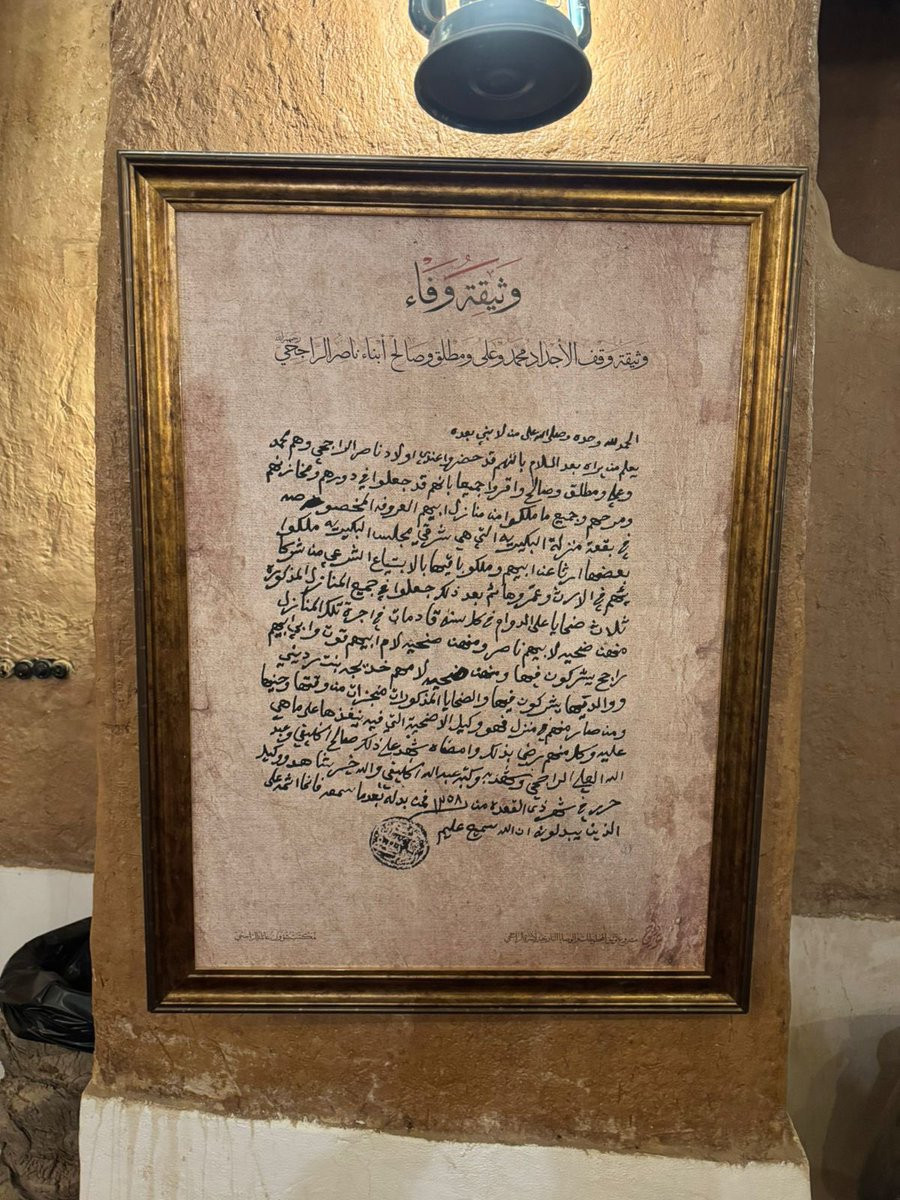 وثيقة وفاء
وثيقة وقف الأجداد محمد وعلي ومطلق وصالح أبناء ناصر الراجحي
الحمد لله وحده وصلى الله على من لا نبي بعده
يعلم من يراه بعد السلام بأنهم قد حضروا عندي اولاد ناصر الراجحي وهم محمد
وعلي ومطلق وصالح واقروا جميعا بانهم قد جعلوا في دورهم ومخازنهم
ومرحهم وجميع ما ملكوا من منازل ابيهم المعروفه المخصوصه
في بقعة منزلة البكيريه التي هي شرقي مجلس البكيريه ملكوا
بعضها ارثا عن ابيهم وملكوا باقيها بالابتياع الشرعي من شركا
ئهم في الارث وعمروها ثم بعد ذلك جعلوا في جميع المنازل المذكورة
ثلاث ضحايا على الدوام في كل سنة قادمات في اجرة تلك المنازل
منهن ضحيه لابيهم ناصر ومنهن ضحيه لام ابيهم قوت وابي ابيهم
راجح يشتركون فيها ومنهن ضحيه لامهم خديجه بنت رديني
ووالديها يشتركون فيها والضحايا المذكورات منجزات من وقتها وحينها
ومن صار منهم في منزل فهو وكيل الاضحية التي فيه ينفذها على ما هي
عليه وكل منهم رضي بذلك وامضاه شهد على ذلك صالح الخليفي وعبد
الله العلي الراجحي وشهد به وكتبه عبدالله الخليفي والله خير شاهد ووكيل
حرر في شهر ذي القعدة من ١٣٥٨ فمن بدله بعدما سمعه فانما اثمه على
الذين يبدلونه ان الله سميع عليم